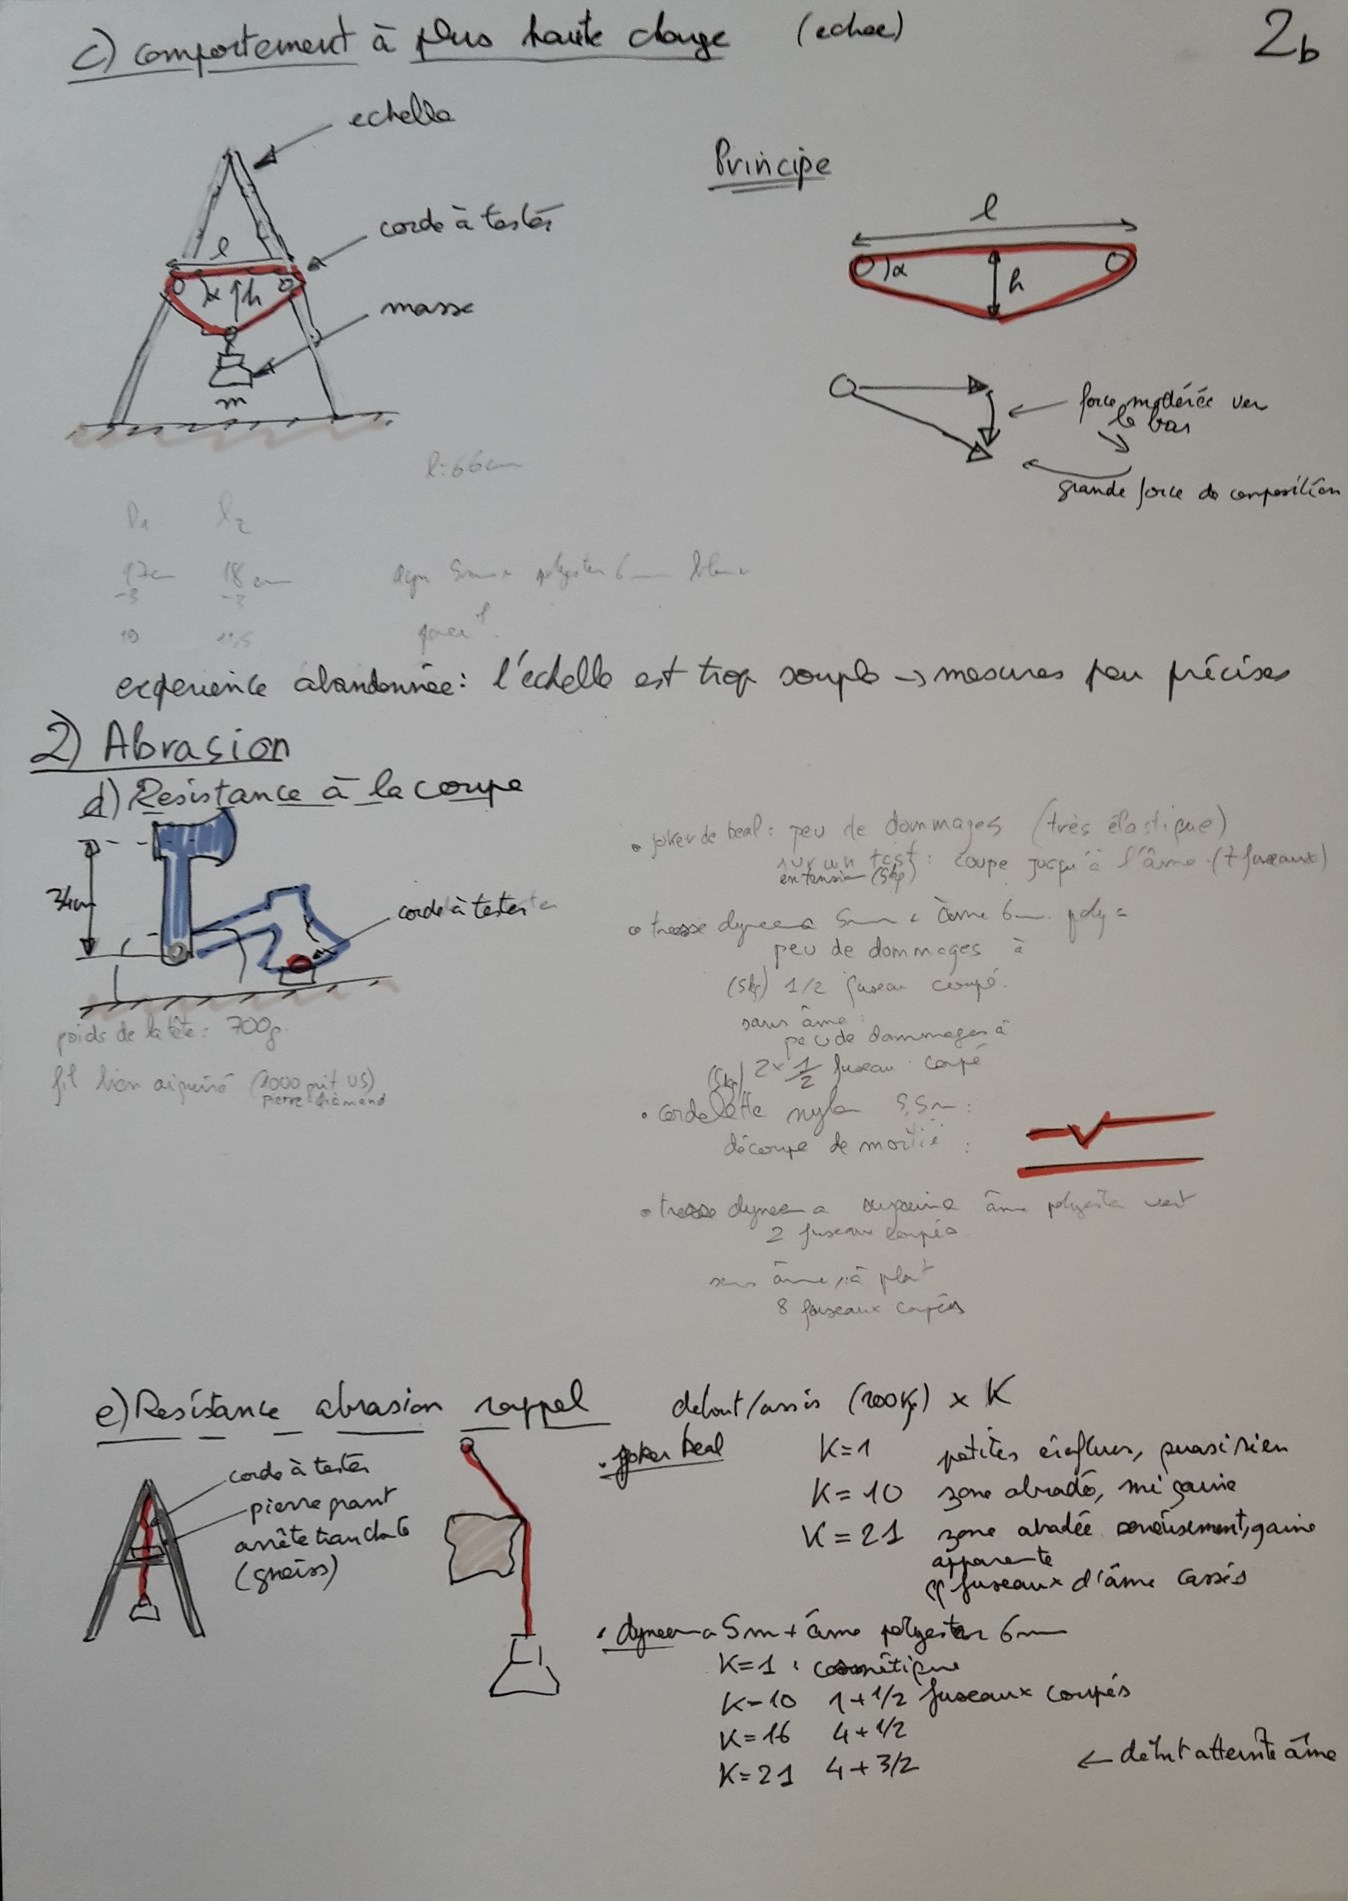 c) comportement à plus haute charge (echec)
2b
echelle
Principe
l
corde à tester
l
α h
α
h
masse
m
force modérée vers
le bas
grande force de composition
l: 66cm
l1 l2
17cm 18cm
-3 -2
polyester 6mm
experience abandonnée: l'échelle est trop souple → mesures peu précises
2) Abrasion
d) Resistance à la coupe
34cm
corde à tester
poids de la tête: 700g.
fil bien aiguisé (1000 grit US)
pierre diamand
• joker de beal: peu de dommages (très élastique)
sur un test: coupe jusqu'à l'âme (7 fuseaux)
en tension (5kg)
• tresse dyneema 5mm + âme 6mm poly
peu de dommages à
(5kg) 1/2 fuseau coupé.
sans âme:
peu de dommages à
(5kg) 2 x 1/2 fuseau coupé
• cordelette nylon 5,5m:
découpe de moitié:
• tresse dyneema âme polyester vert
2 fuseaux coupés
sans âme, à plat
8 fuseaux coupés
e) Resistance abrasion rappel debout/assis (100kg) x K
corde à tester
pierre
arrête tranchante
(gneiss)
• joker beal
K=1 petites éraflures, quasi rien
K=10 zone abradée, mi gaine
K=21 zone abradée sérieusement, gaine
apparente
fuseaux d'âme cassés
• dyneema 5m + âme polyester 6mm
K=1 : cosmétique
K=10 1+1/2 fuseaux coupés
K=16 4+1/2
K=21 4+3/2 ← début atteinte âme